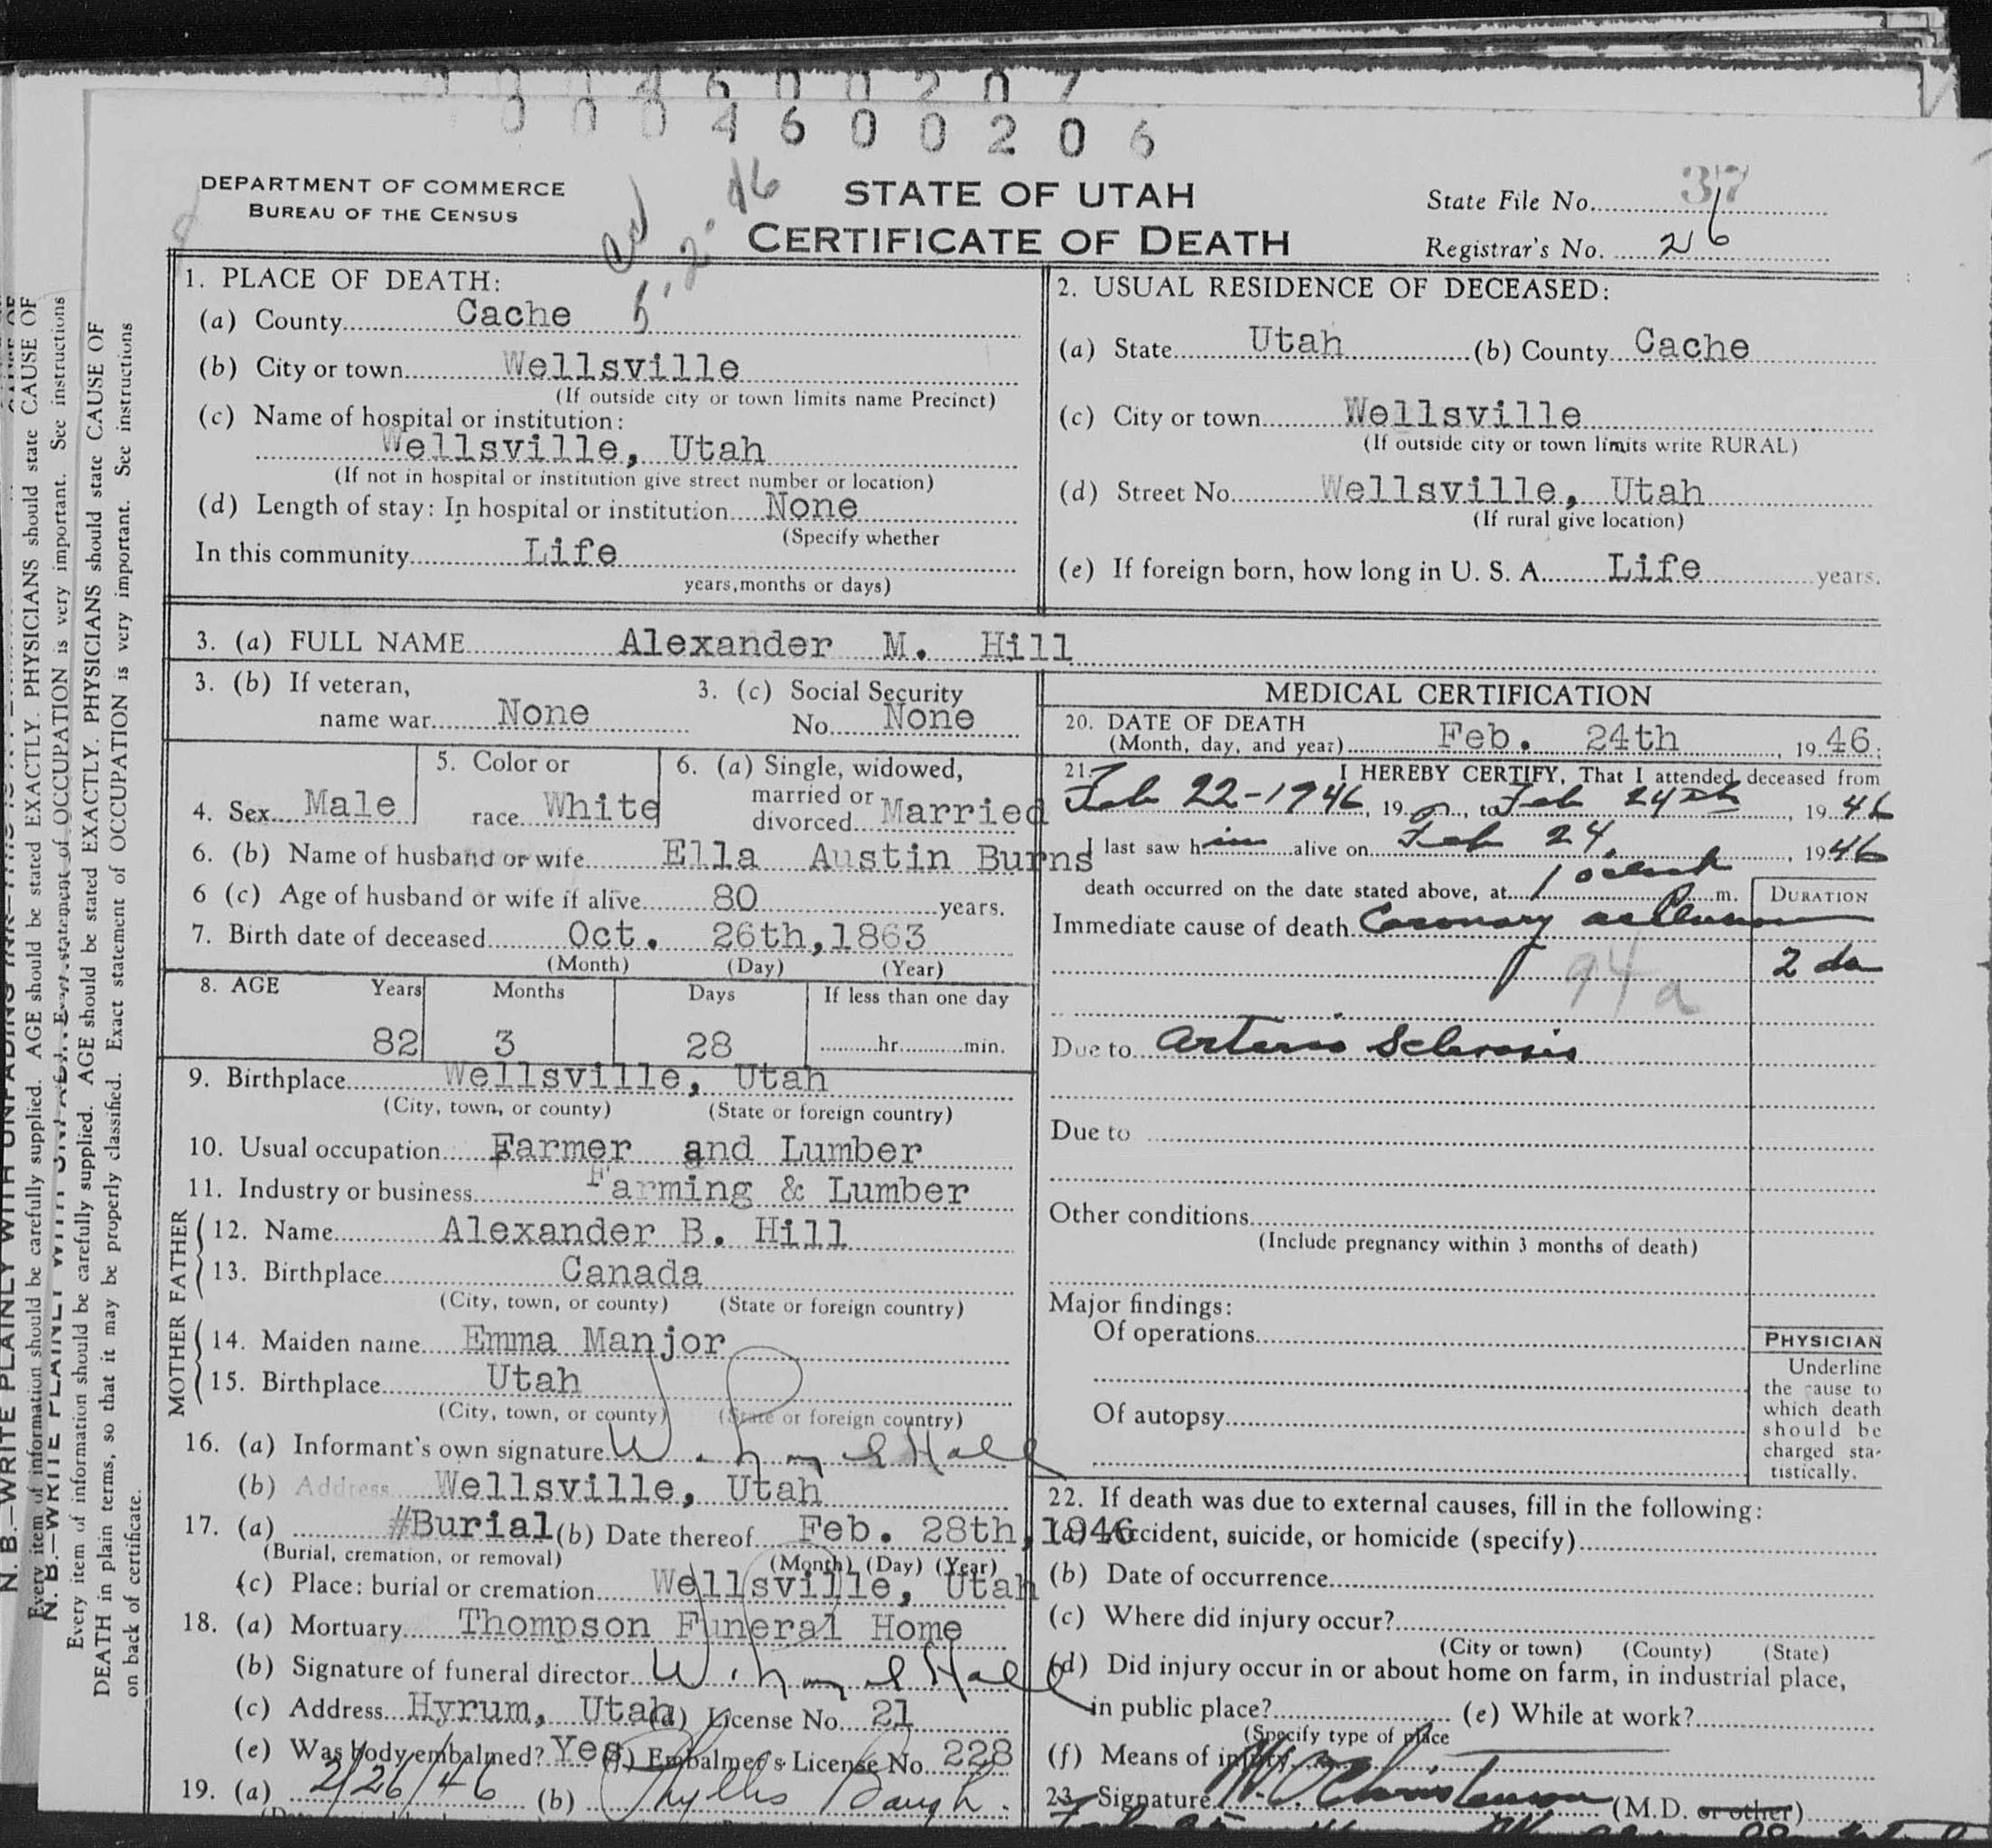 0004600207
0004600206
DEPARTMENT OF COMMERCE
BUREAU OF THE CENSUS
STATE OF UTAH
CERTIFICATE OF DEATH
State File No. 37
Registrar's No. 26
1. PLACE OF DEATH:
(a) County Cache
(b) City or town Wellsville
(If outside city or town limits name Precinct)
(c) Name of hospital or institution:
Wellsville, Utah
(If not in hospital or institution give street number or location)
(d) Length of stay: In hospital or institution None
(Specify whether
In this community Life
years, months or days)
2. USUAL RESIDENCE OF DECEASED:
(a) State Utah (b) County Cache
(c) City or town Wellsville
(If outside city or town limits write RURAL)
(d) Street No. Wellsville, Utah
(If rural give location)
(e) If foreign born, how long in U. S. A. Life years.
3. (a) FULL NAME Alexander M. Hill
3. (b) If veteran,
name war None
3. (c) Social Security
No. None
4. Sex Male
5. Color or
race White
6. (a) Single, widowed,
married or
divorced Married
6. (b) Name of husband or wife Ella Austin Burns
6 (c) Age of husband or wife if alive 80 years.
7. Birth date of deceased Oct. 26th, 1863
(Month) (Day) (Year)
8. AGE Years Months Days If less than one day
82 3 28 hr. min.
9. Birthplace Wellsville, Utah
(City, town, or county) (State or foreign country)
10. Usual occupation Farmer and Lumber
11. Industry or business Farming & Lumber
FATHER
12. Name Alexander B. Hill
13. Birthplace Canada
(City, town, or county) (State or foreign country)
MOTHER
14. Maiden name Emma Manjor
15. Birthplace Utah
(City, town, or county) (State or foreign country)
16. (a) Informant's own signature W. Hall
(b) Address Wellsville, Utah
17. (a) #Burial (b) Date thereof Feb. 28th, 1946
(Burial, cremation, or removal) (Month) (Day) (Year)
(c) Place: burial or cremation Wellsville, Utah
18. (a) Mortuary Thompson Funeral Home
(b) Signature of funeral director W. Hall
(c) Address Hyrum, Utah (d) License No. 21
(e) Was body embalmed? Yes (f) Embalmer's License No. 228
19. (a) 2/26/46 (b) Phyllis Baugh
MEDICAL CERTIFICATION
20. DATE OF DEATH
(Month, day, and year) Feb. 24th, 1946;
21. I HEREBY CERTIFY, That I attended deceased from
Feb 22-1946, 19, to Feb 24th, 1946
I last saw him alive on Feb 24, 1946
death occurred on the date stated above, at 1 oclock P. m.
DURATION
Immediate cause of death Coronary occlusion
2 da
94a
Due to Arterio Sclerosis
Due to
Other conditions
(Include pregnancy within 3 months of death)
Major findings:
Of operations
Of autopsy
PHYSICIAN
Underline
the cause to
which death
should be
charged sta-
tistically.
22. If death was due to external causes, fill in the following:
(a) Accident, suicide, or homicide (specify)
(b) Date of occurrence
(c) Where did injury occur?
(City or town) (County) (State)
(d) Did injury occur in or about home on farm, in industrial place,
in public place? (e) While at work?
(Specify type of place
(f) Means of injury
23. Signature Christenson (M.D. or other)
N. B.—WRITE PLAINLY WITH UNFADING INK
Every item of information should be carefully supplied. AGE should be stated EXACTLY. PHYSICIANS should state CAUSE OF
DEATH in plain terms, so that it may be properly classified. Exact statement of OCCUPATION is very important. See instructions
on back of certificate.